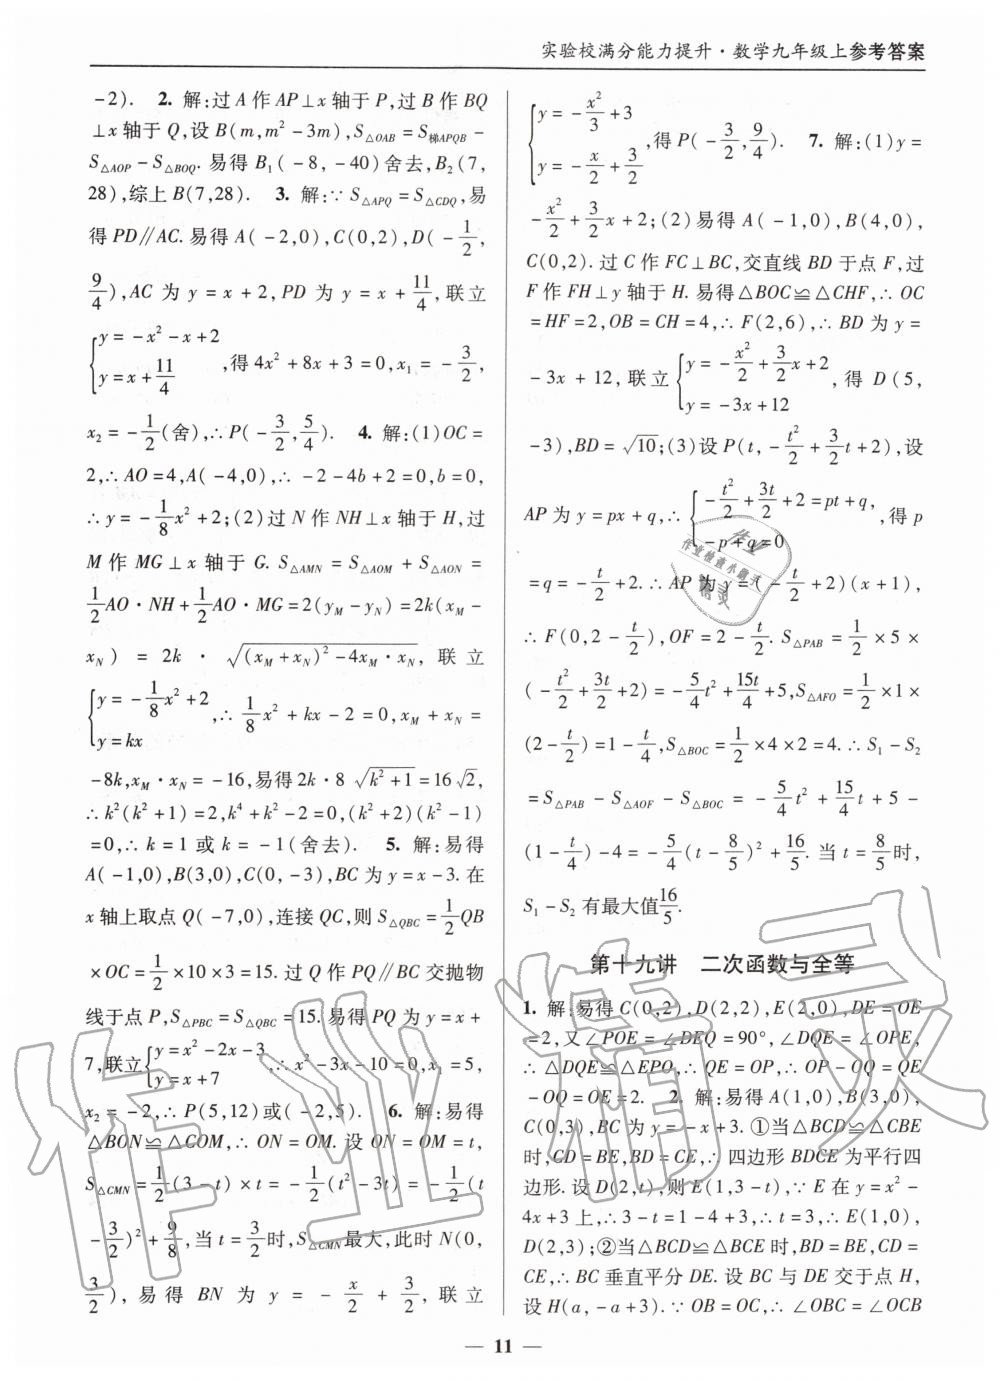 实验校满分能力提升·数学九年级上参考答案
-2). 2. 解:过 A 作 AP⊥x 轴于 P,过 B 作 BQ
⊥x 轴于 Q,设 B(m,m²-3m),S△OAB=S梯APQB-
S△AOP-S△BOQ. 易得 B₁(-8,-40)舍去,B₂(7,
28),综上 B(7,28). 3. 解:∵S△APQ=S△CDQ,易
得 PD∥AC. 易得 A(-2,0),C(0,2),D(-1/2,
9/4),AC 为 y=x+2,PD 为 y=x+11/4,联立
{y=-x²-x+2
y=x+11/4 ,得 4x²+8x+3=0,x₁=-3/2,
x₂=-1/2(舍),∴P(-3/2,5/4). 4. 解:(1)OC=
2,∴AO=4,A(-4,0),∴-2-4b+2=0,b=0,
∴y=-1/8x²+2;(2)过 N 作 NH⊥x 轴于 H,过
M 作 MG⊥x 轴于 G. S△AMN=S△AOM+S△AON=
1/2AO·NH+1/2AO·MG=2(yM-yN)=2k(xM-
xN)=2k·√((xM+xN)²-4xM·xN),联立
{y=-1/8x²+2
y=kx ,∴1/8x²+kx-2=0,xM+xN=
-8k,xM·xN=-16,易得 2k·8√(k²+1)=16√2,
∴k²(k²+1)=2,k⁴+k²-2=0,(k²+2)(k²-1)
=0,∴k=1 或 k=-1(舍去). 5. 解:易得
A(-1,0),B(3,0),C(0,-3),BC 为 y=x-3. 在
x 轴上取点 Q(-7,0),连接 QC,则 S△QBC=1/2QB
×OC=1/2×10×3=15. 过 Q 作 PQ∥BC 交抛物
线于点 P,S△PBC=S△QBC=15. 易得 PQ 为 y=x+
7,联立{y=x²-2x-3
y=x+7 ,∴x²-3x-10=0,x₁=5,
x₂=-2,∴P(5,12)或(-2,5). 6. 解:易得
△BON≌△COM,∴ON=OM. 设 ON=OM=t,
S△CMN=1/2(3-t)×t=-1/2(t²-3t)=-1/2(t
-3/2)²+9/8,当 t=3/2时,S△CMN最大,此时 N(0,
3/2),易得 BN 为 y=-x/2+3/2,联立
{y=-x²/3+3
y=-x/2+3/2 ,得 P(-3/2,9/4). 7. 解:(1)y=
-x²/2+3/2x+2;(2)易得 A(-1,0),B(4,0),
C(0,2). 过 C 作 FC⊥BC,交直线 BD 于点 F,过
F 作 FH⊥y 轴于 H. 易得△BOC≌△CHF,∴OC
=HF=2,OB=CH=4,∴F(2,6),∴BD 为 y=
-3x+12,联立{y=-x²/2+3/2x+2
y=-3x+12 ,得 D(5,
-3),BD=√10;(3)设 P(t,-t²/2+3/2t+2),设
AP 为 y=px+q,∴{-t²/2+3t/2+2=pt+q,
-p+q=0 ,得 p
=q=-t/2+2. ∴AP 为 y=(-t/2+2)(x+1),
∴F(0,2-t/2),OF=2-t/2. S△PAB=1/2×5×
(-t²/2+3t/2+2)=-5/4t²+15t/4+5,S△AFO=1/2×1×
(2-t/2)=1-t/4,S△BOC=1/2×4×2=4. ∴S₁-S₂
=S△PAB-S△AOF-S△BOC=-5/4t²+15/4t+5-
(1-t/4)-4=-5/4(t-8/5)²+16/5. 当 t=8/5时,
S₁-S₂ 有最大值16/5.
第十九讲 二次函数与全等
1. 解:易得 C(0,2),D(2,2),E(2,0),DE=OE
=2,又∠POE=∠DEQ=90°,∠DQE=∠OPE,
∴△DQE≌△EPO,∴QE=OP,∴OP-OQ=QE
-OQ=OE=2. 2. 解:易得 A(1,0),B(3,0),
C(0,3),BC 为 y=-x+3. ①当△BCD≌△CBE
时,CD=BE,BD=CE,∴四边形 BDCE 为平行四
边形. 设 D(2,t),则 E(1,3-t),∵E 在 y=x²-
4x+3 上,∴3-t=1-4+3,∴t=3,∴E(1,0),
D(2,3);②当△BCD≌△BCE 时,BD=BE,CD=
CE,∴BC 垂直平分 DE. 设 BC 与 DE 交于点 H,
设 H(a,-a+3). ∵OB=OC,∴∠OBC=∠OCB
— 11 —
作业精灵
作业
作业检查小助手
精灵